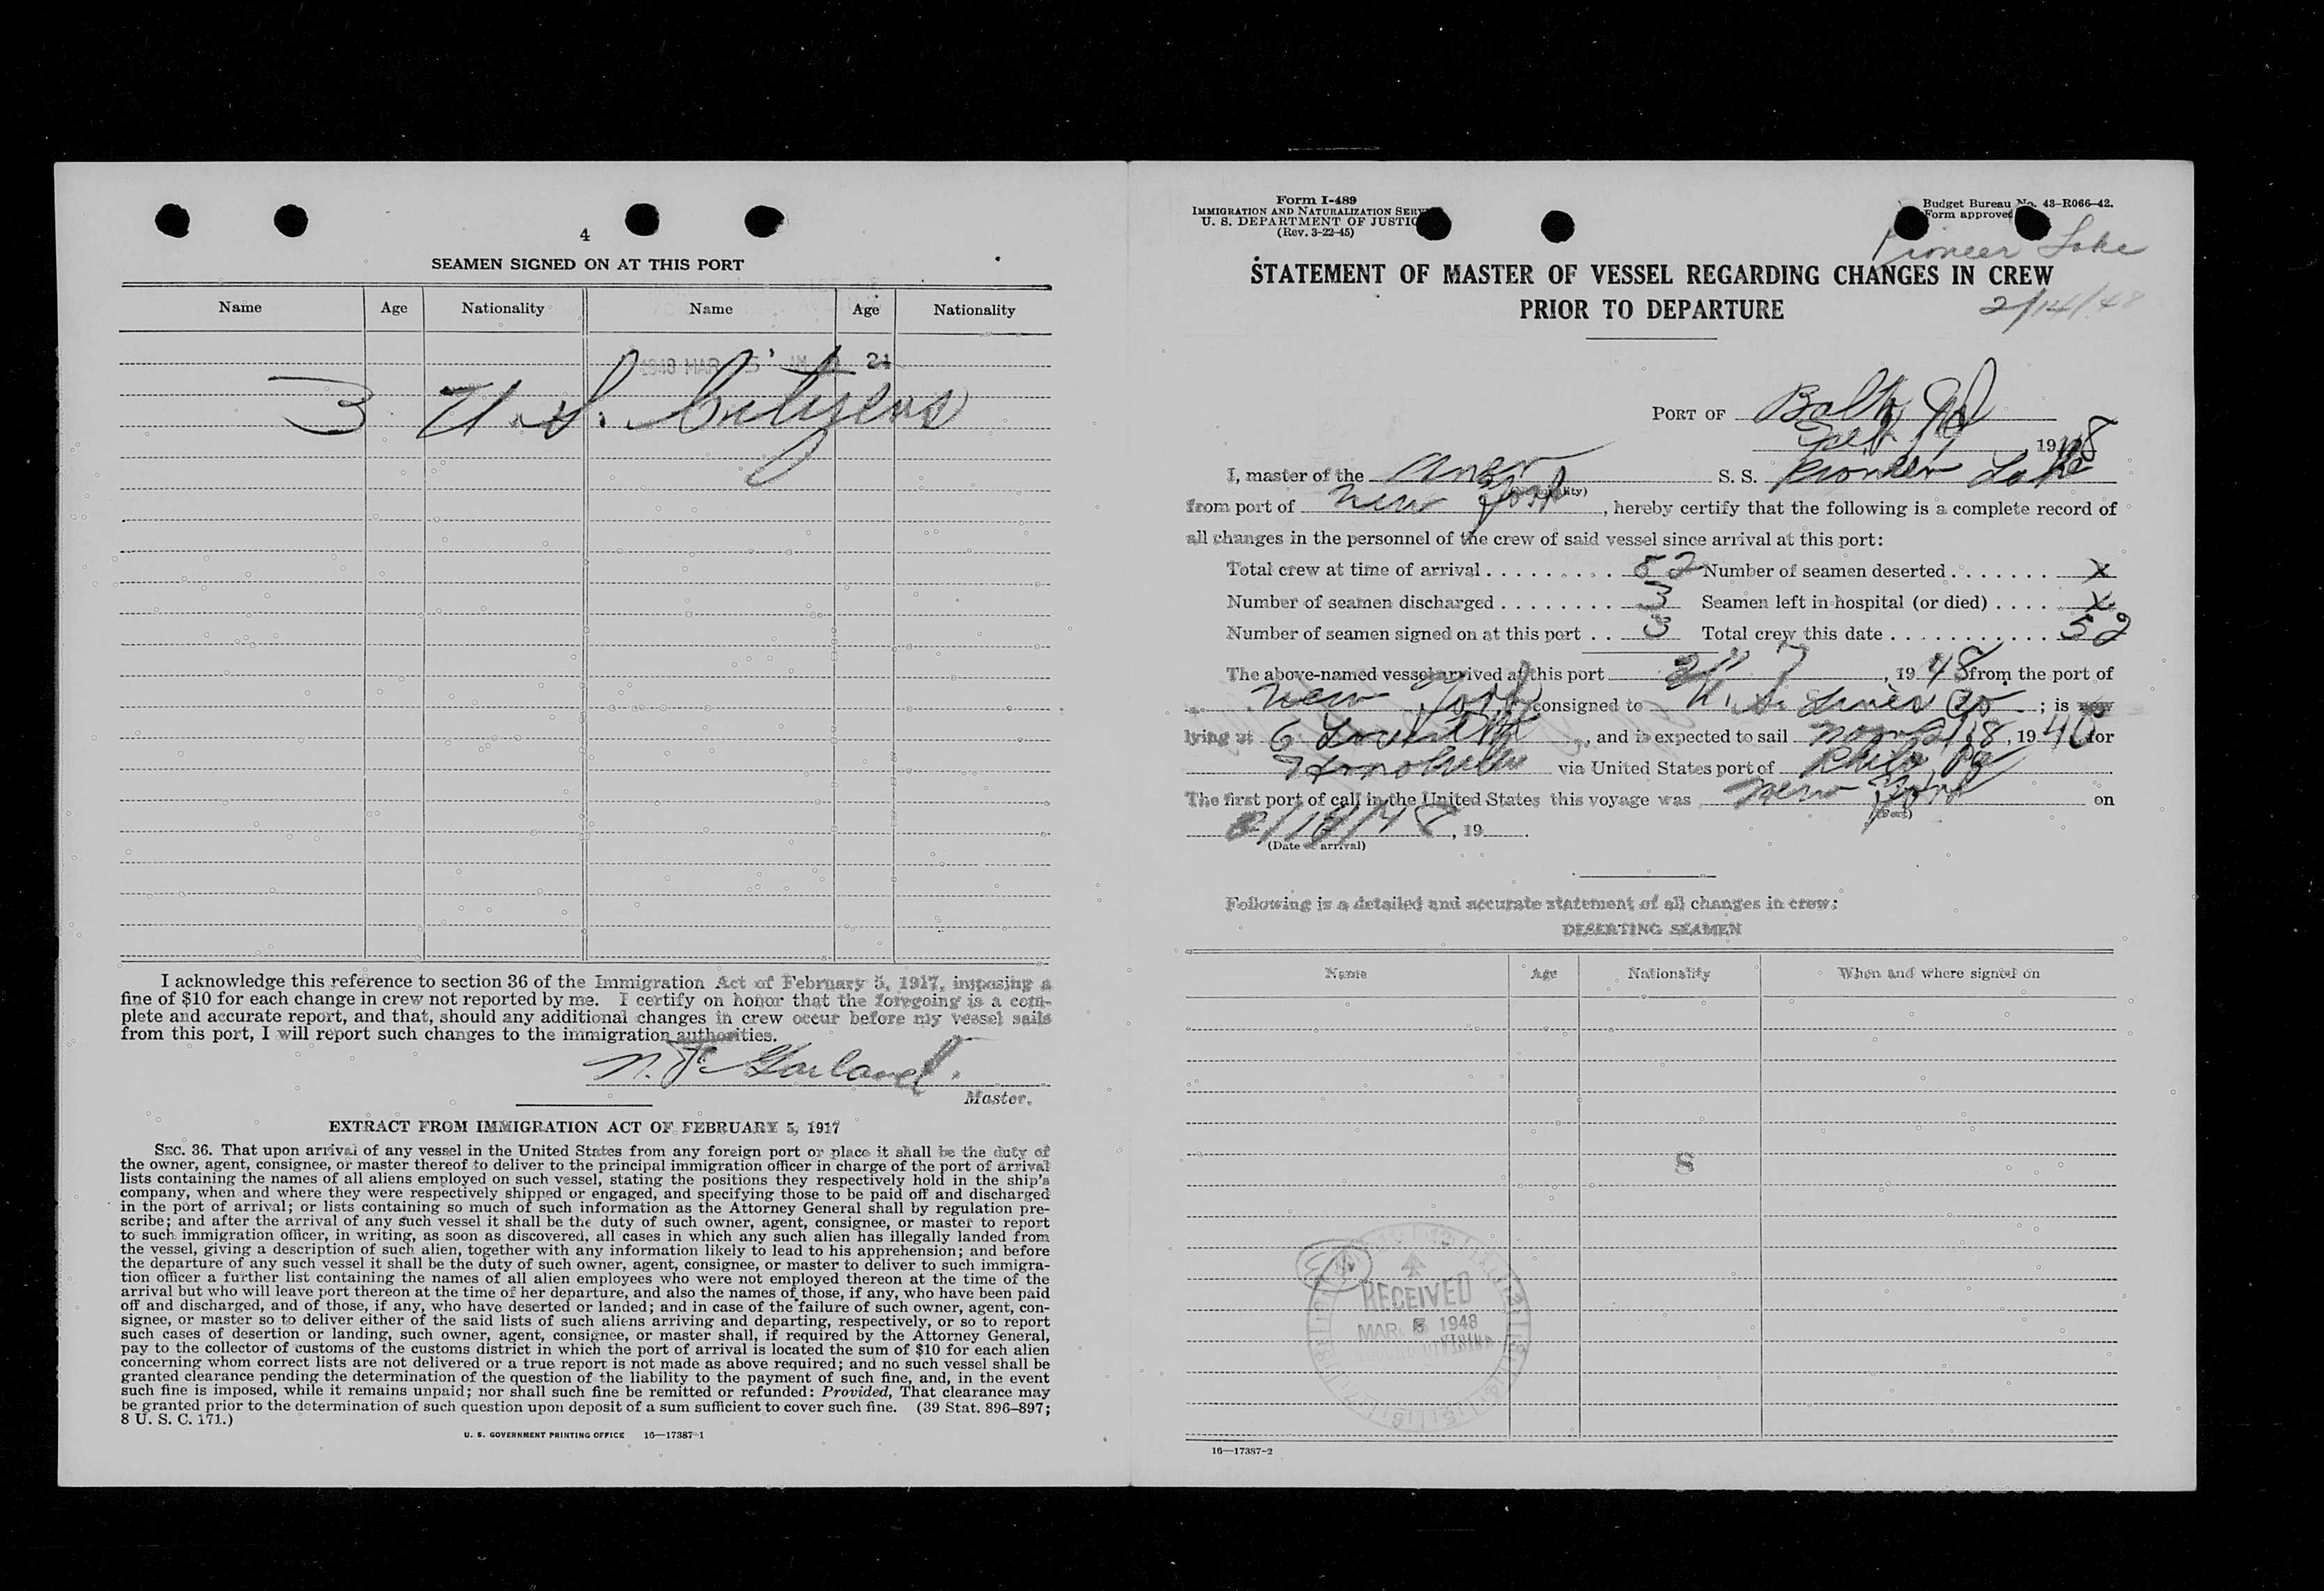 4
SEAMEN SIGNED ON AT THIS PORT
Name Age Nationality Name Age Nationality
3 U.S. Citizens
I acknowledge this reference to section 36 of the Immigration Act of February 5, 1917, imposing a
fine of $10 for each change in crew not reported by me. I certify on honor that the foregoing is a com-
plete and accurate report, and that, should any additional changes in crew occur before my vessel sails
from this port, I will report such changes to the immigration authorities.
Garland.
Master.
EXTRACT FROM IMMIGRATION ACT OF FEBRUARY 5, 1917
SEC. 36. That upon arrival of any vessel in the United States from any foreign port or place it shall be the duty of
the owner, agent, consignee, or master thereof to deliver to the principal immigration officer in charge of the port of arrival
lists containing the names of all aliens employed on such vessel, stating the positions they respectively hold in the ship's
company, when and where they were respectively shipped or engaged, and specifying those to be paid off and discharged
in the port of arrival; or lists containing so much of such information as the Attorney General shall by regulation pre-
scribe; and after the arrival of any such vessel it shall be the duty of such owner, agent, consignee, or master to report
to such immigration officer, in writing, as soon as discovered, all cases in which any such alien has illegally landed from
the vessel, giving a description of such alien, together with any information likely to lead to his apprehension; and before
the departure of any such vessel it shall be the duty of such owner, agent, consignee, or master to deliver to such immigra-
tion officer a further list containing the names of all alien employees who were not employed thereon at the time of the
arrival but who will leave port thereon at the time of her departure, and also the names of those, if any, who have been paid
off and discharged, and of those, if any, who have deserted or landed; and in case of the failure of such owner, agent, con-
signee, or master so to deliver either of the said lists of such aliens arriving and departing, respectively, or so to report
such cases of desertion or landing, such owner, agent, consignee, or master shall, if required by the Attorney General,
pay to the collector of customs of the customs district in which the port of arrival is located the sum of $10 for each alien
concerning whom correct lists are not delivered or a true report is not made as above required; and no such vessel shall be
granted clearance pending the determination of the question of the liability to the payment of such fine, and, in the event
such fine is imposed, while it remains unpaid; nor shall such fine be remitted or refunded: Provided, That clearance may
be granted prior to the determination of such question upon deposit of a sum sufficient to cover such fine. (39 Stat. 896–897;
8 U. S. C. 171.)
U. S. GOVERNMENT PRINTING OFFICE 16—17387-1
Form I-489
IMMIGRATION AND NATURALIZATION SERV
U. S. DEPARTMENT OF JUSTIC
(Rev. 3-22-45)
Budget Bureau No. 43-R066-42.
Form approved
Pioneer Lake
2/14/48
STATEMENT OF MASTER OF VESSEL REGARDING CHANGES IN CREW
PRIOR TO DEPARTURE
PORT OF Balto Md
Feb 19, 1948
I, master of the Amer S. S. Pioneer Lake
from port of New York, hereby certify that the following is a complete record of
all changes in the personnel of the crew of said vessel since arrival at this port:
Total crew at time of arrival 52 Number of seamen deserted X
Number of seamen discharged 3 Seamen left in hospital (or died) X
Number of seamen signed on at this port 3 Total crew this date 52
The above-named vessel arrived at this port , 1948 from the port of
New York consigned to U. S. Lines Co ; is now
lying at 6 Locust Pt, and is expected to sail , 19 for
Honolulu via United States port of Phila, Pa
The first port of call in the United States this voyage was New York on
, 19
(Date of arrival)
(Port)
Following is a detailed and accurate statement of all changes in crew:
DESERTING SEAMEN
Name Age Nationality When and where signed on
8
RECEIVED
MAR 5 1948
16—17387-2